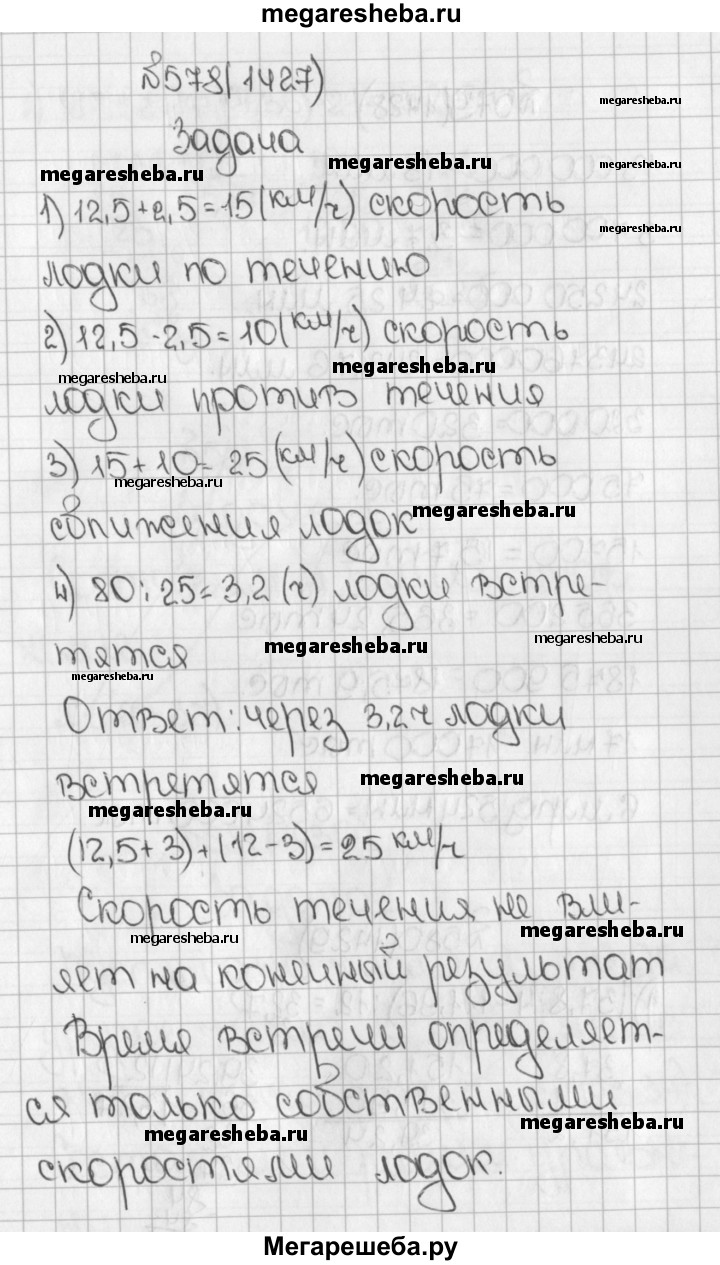 megaresheba.ru
№578(1427)
megaresheba.ru
Задача
megaresheba.ru
megaresheba.ru
megaresheba.ru
1) 12,5+2,5=15(км/ч) скорость
megaresheba.ru
лодки по течению
2) 12,5-2,5=10(км/ч) скорость
megaresheba.ru
megaresheba.ru
лодки против течения
3) 15+10=25(км/ч) скорость
megaresheba.ru
megaresheba.ru
сближения лодок
4) 80:25=3,2(ч) лодки встре-
megaresheba.ru
megaresheba.ru
тятся
megaresheba.ru
Ответ: через 3,2ч лодки
встретятся
megaresheba.ru
megaresheba.ru
(12,5+3)+(12-3)=25 км/ч
Скорость течения не вли-
megaresheba.ru
megaresheba.ru
яет на конечный результат
Время встречи определяет-
ся только собственными
megaresheba.ru
megaresheba.ru
скоростями лодок.
Мегарешеба.ру